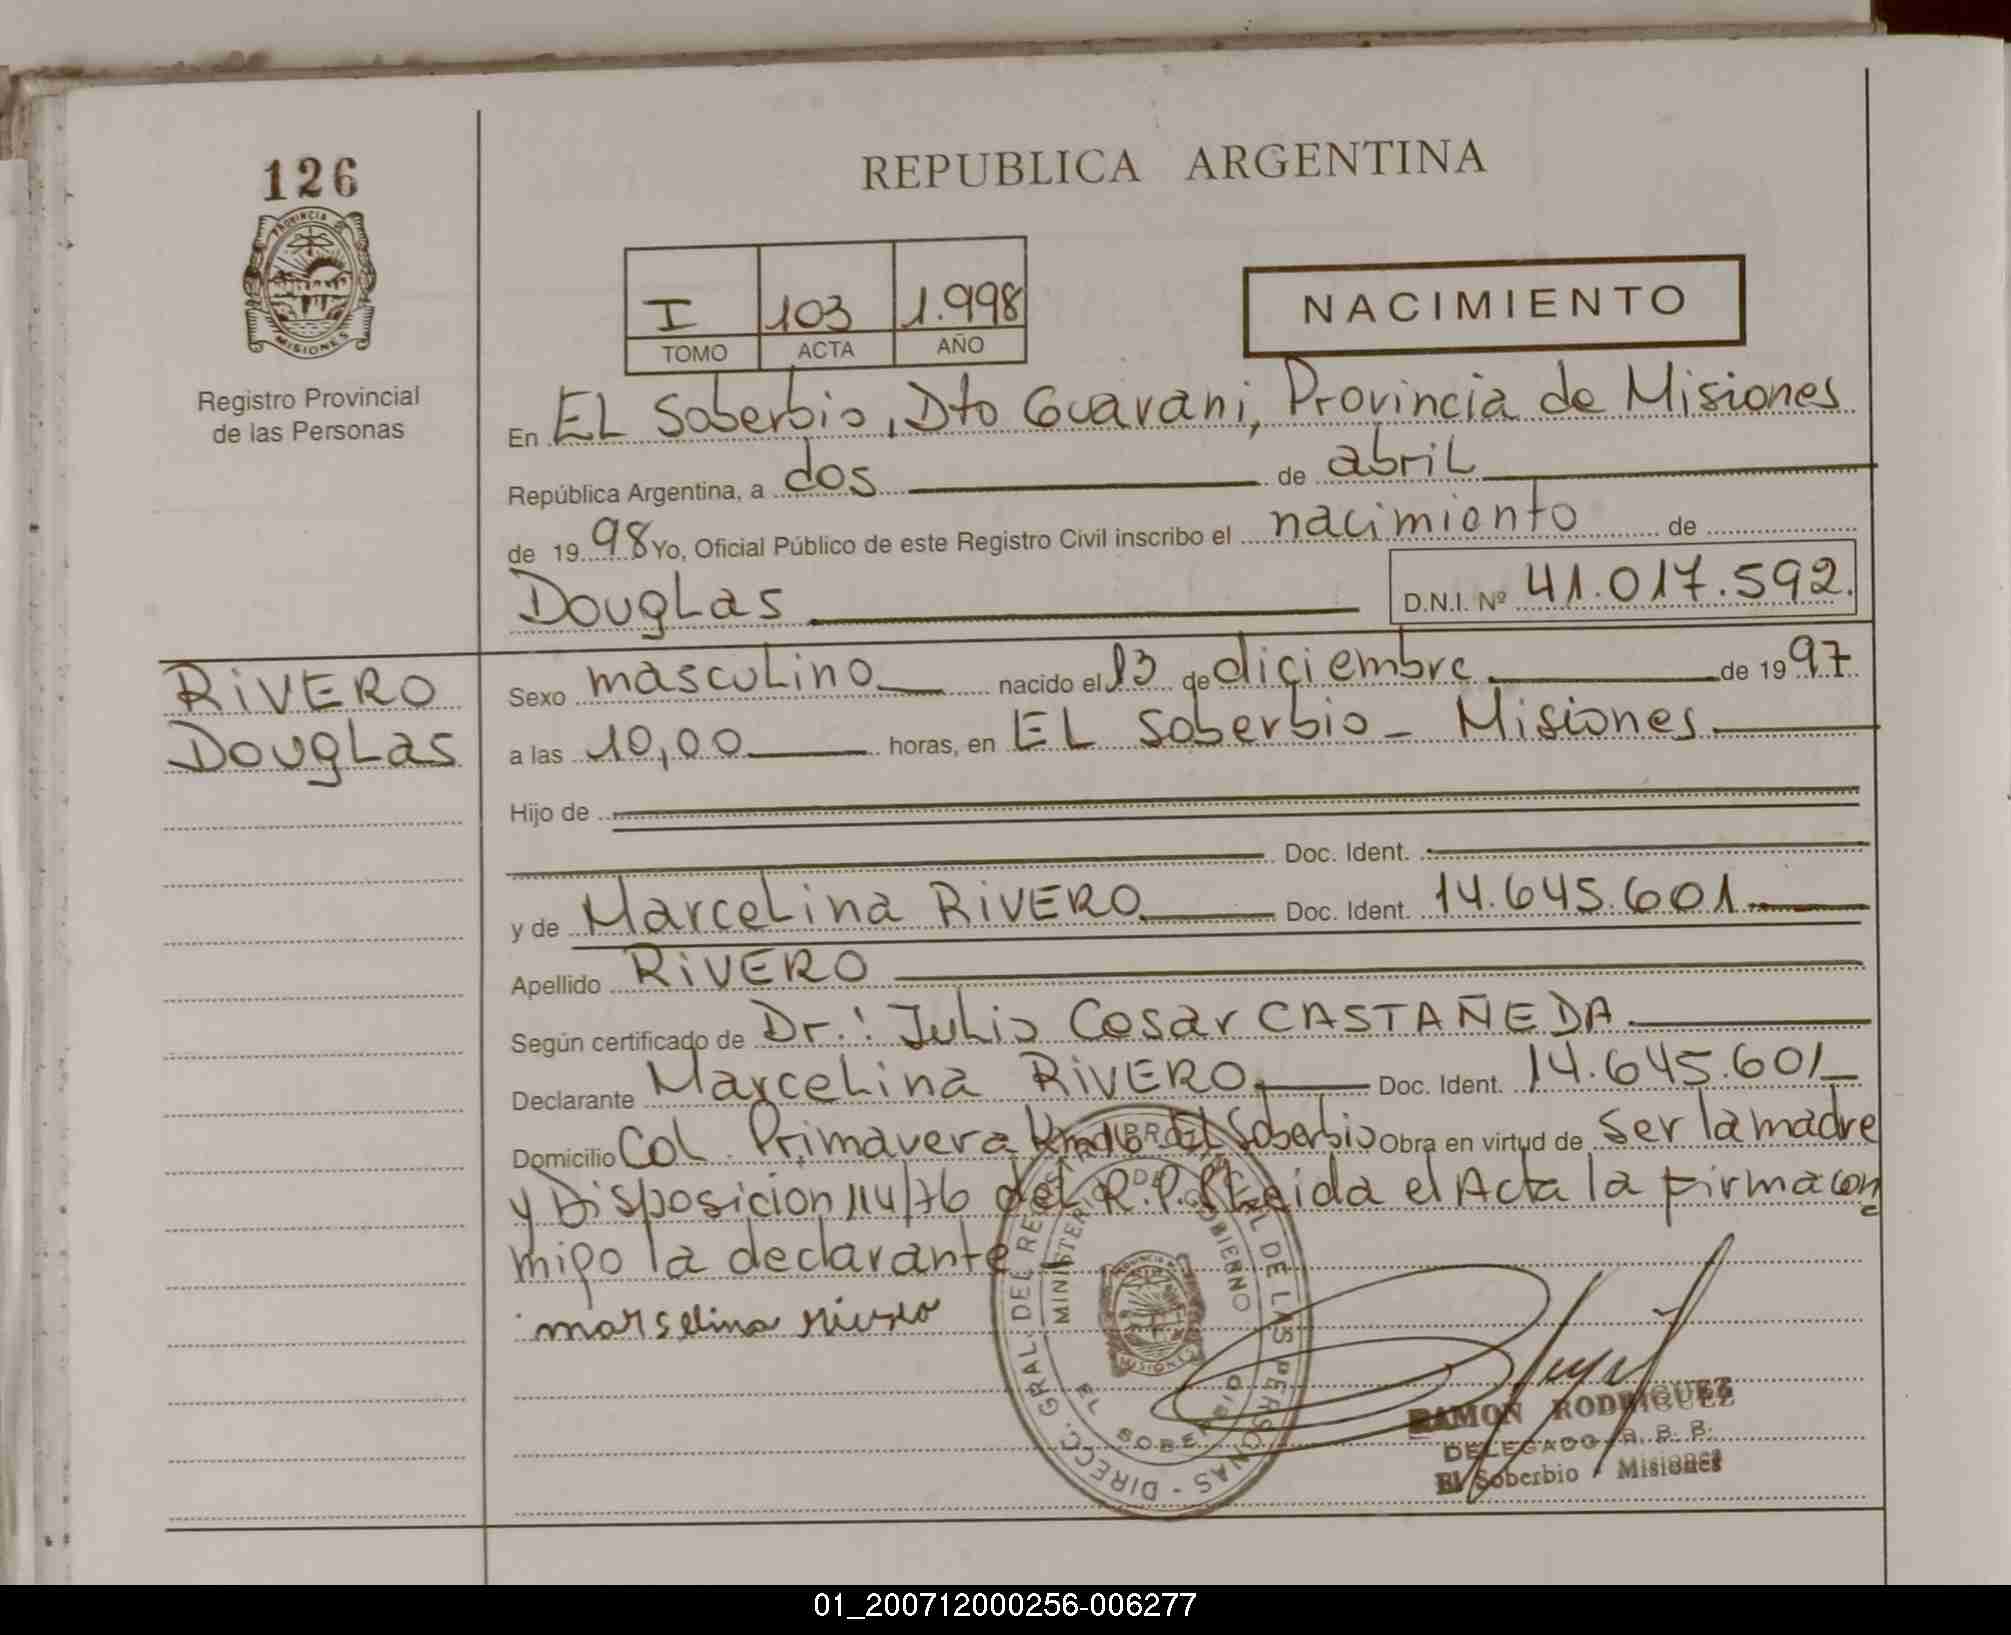 126
PROVINCIA DE
MISIONES
Registro Provincial
de las Personas
REPUBLICA ARGENTINA
I 103 1.998
TOMO ACTA AÑO
NACIMIENTO
En EL Soberbio, Dto Guarani, Provincia de Misiones
República Argentina, a dos de abril
de 1998 Yo, Oficial Público de este Registro Civil inscribo el nacimiento de
Douglas D.N.I. Nº 41.017.592.
RIVERO
Douglas
Sexo masculino nacido el 13 de diciembre de 1997
a las 10,00 horas, en EL Soberbio - Misiones
Hijo de
Doc. Ident.
y de Marcelina RIVERO Doc. Ident. 14.645.601
Apellido RIVERO
Según certificado de Dr.: Julio Cesar CASTAÑEDA
Declarante Marcelina RIVERO Doc. Ident. 14.645.601
Domicilio Col. Primavera del Soberbio Obra en virtud de ser la madre
y Disposicion 114/76 del R.P.P. Leida el Acta la firma con
migo la declarante
marselina rivero
DIRECC. GRAL. DEL REGISTRO DE LAS PERSONAS
MINISTERIO DE GOBIERNO
EL SOBERBIO
MISIONES
RAMON RODRIGUEZ
DELEGADO
El Soberbio - Misiones
01_200712000256-006277